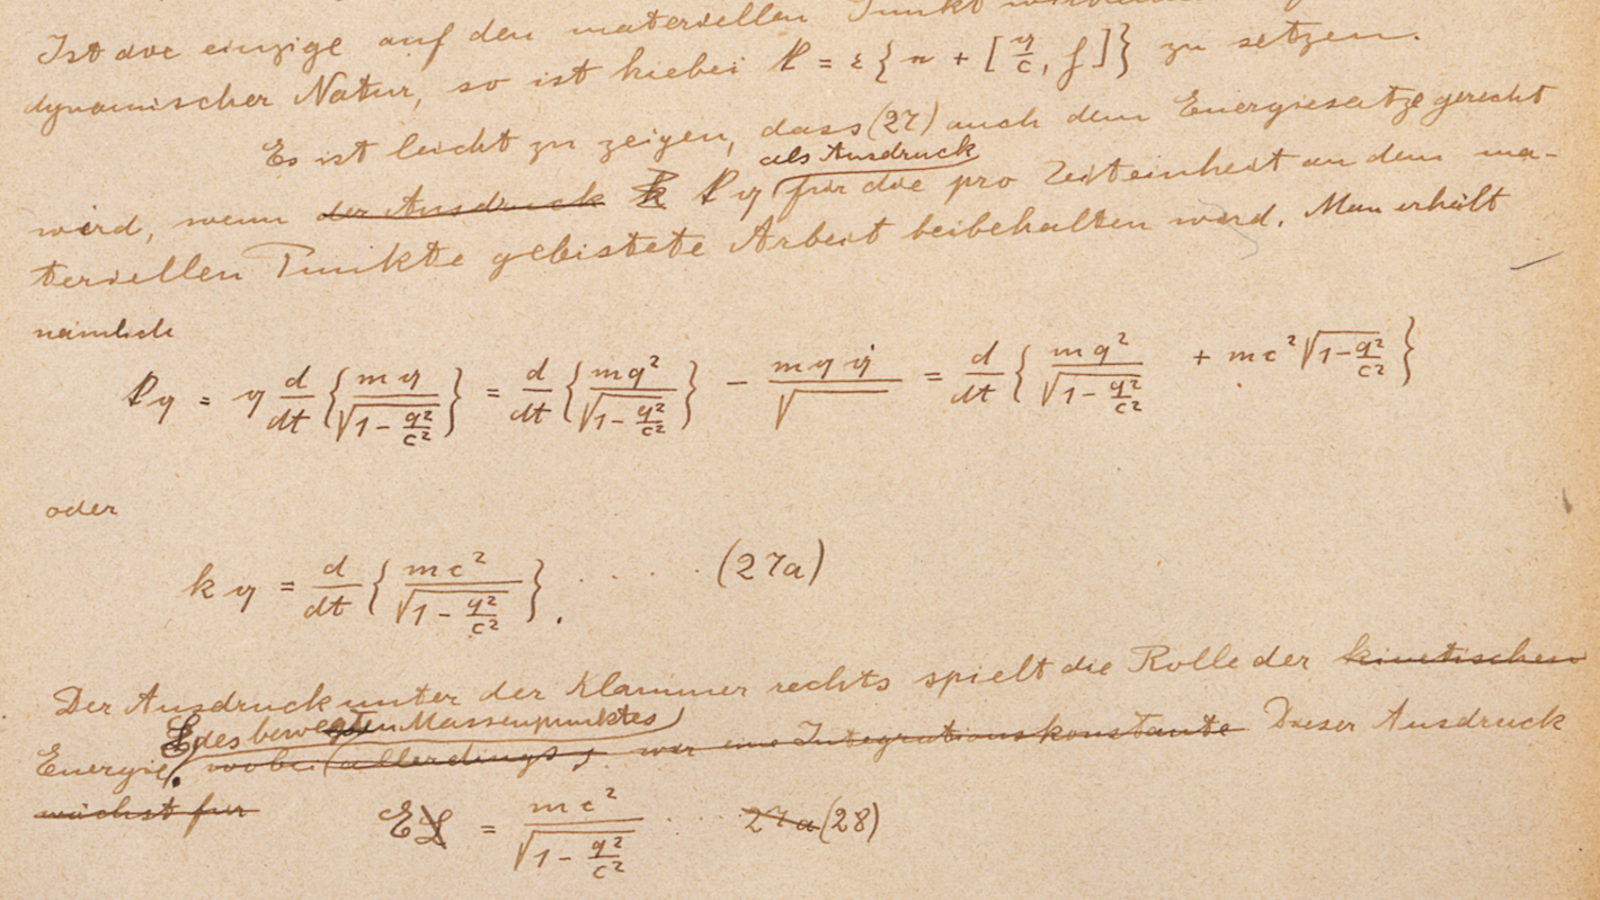 Ist die einzige auf den materiellen Punkt
dynamischer Natur, so ist hiebei k = ε{n + [q/c, f]} zu setzen.
Es ist leicht zu zeigen, dass (27) auch dem Energiesatze gerecht
als Ausdruck
wird, wenn der Ausdruck k k q für die pro Zeiteinheit an dem ma-
teriellen Punkte geleistete Arbeit beibehalten wird. Man erhält
nämlich
k q = q d/dt {m q / √(1 - q²/c²)} = d/dt {m q² / √(1 - q²/c²)} - m q q̇ / √ = d/dt {m q² / √(1 - q²/c²) + m c² √(1 - q²/c²)}
oder
k q = d/dt {m c² / √(1 - q²/c²)}. . . . . (27a)
Der Ausdruck unter der Klammer rechts spielt die Rolle der kinetischen
E des bewegten Massenpunktes
Energie, wobei allerdings, wir eine Integrationskonstante Dieser Ausdruck
wächst für
E L = m c² / √(1 - q²/c²) . . . . 27a (28)